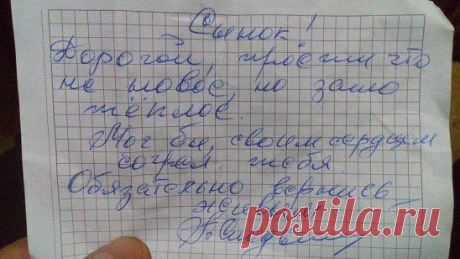 Сынок!
Дорогой, прости что
не новое, но зато
тёплое.
Мог бы, своим сердцем
согрел тебя
Обязательно вернись
живым
Postila.ru